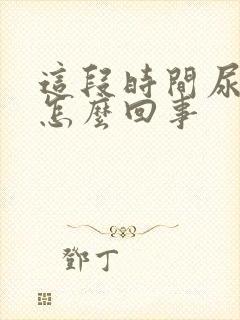 這段時間尿
怎麼回事
鄧丁